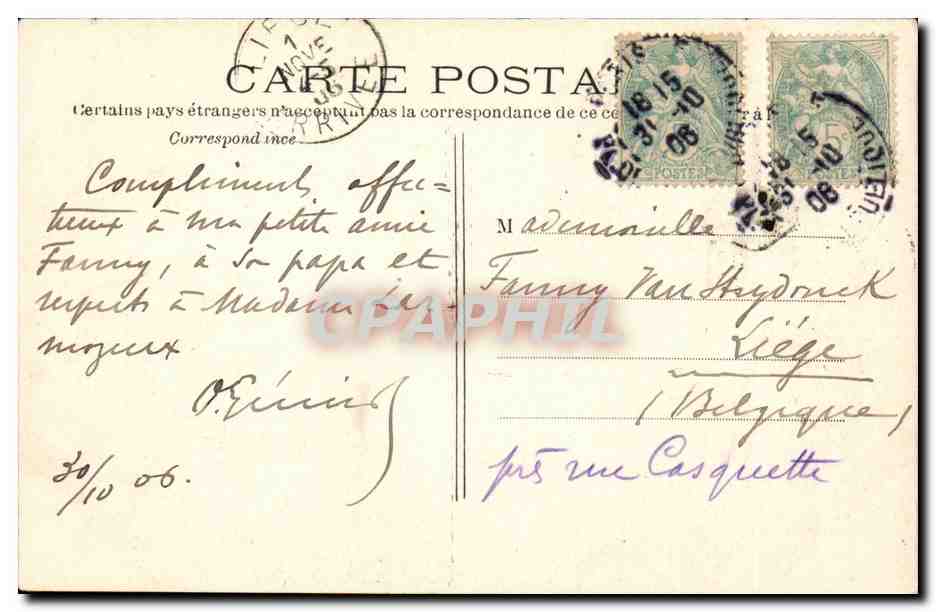 CARTE POSTA
Certains pays étrangers n'acceptent pas la correspondance de ce cô
Correspondance
Compliments affec=
tueux à ma petite amie
Fanny, à son papa et
respects à Madame
mozeux
30/10 06.
Mademoiselle
Fanny Van Heydonck
Liége
(Belgique)
près rue Casquette
CPAPHIL
LIEGE
1
NOVE
ARRIVEE
PARIS
18 15
31 10
06
POSTES
15
10
06